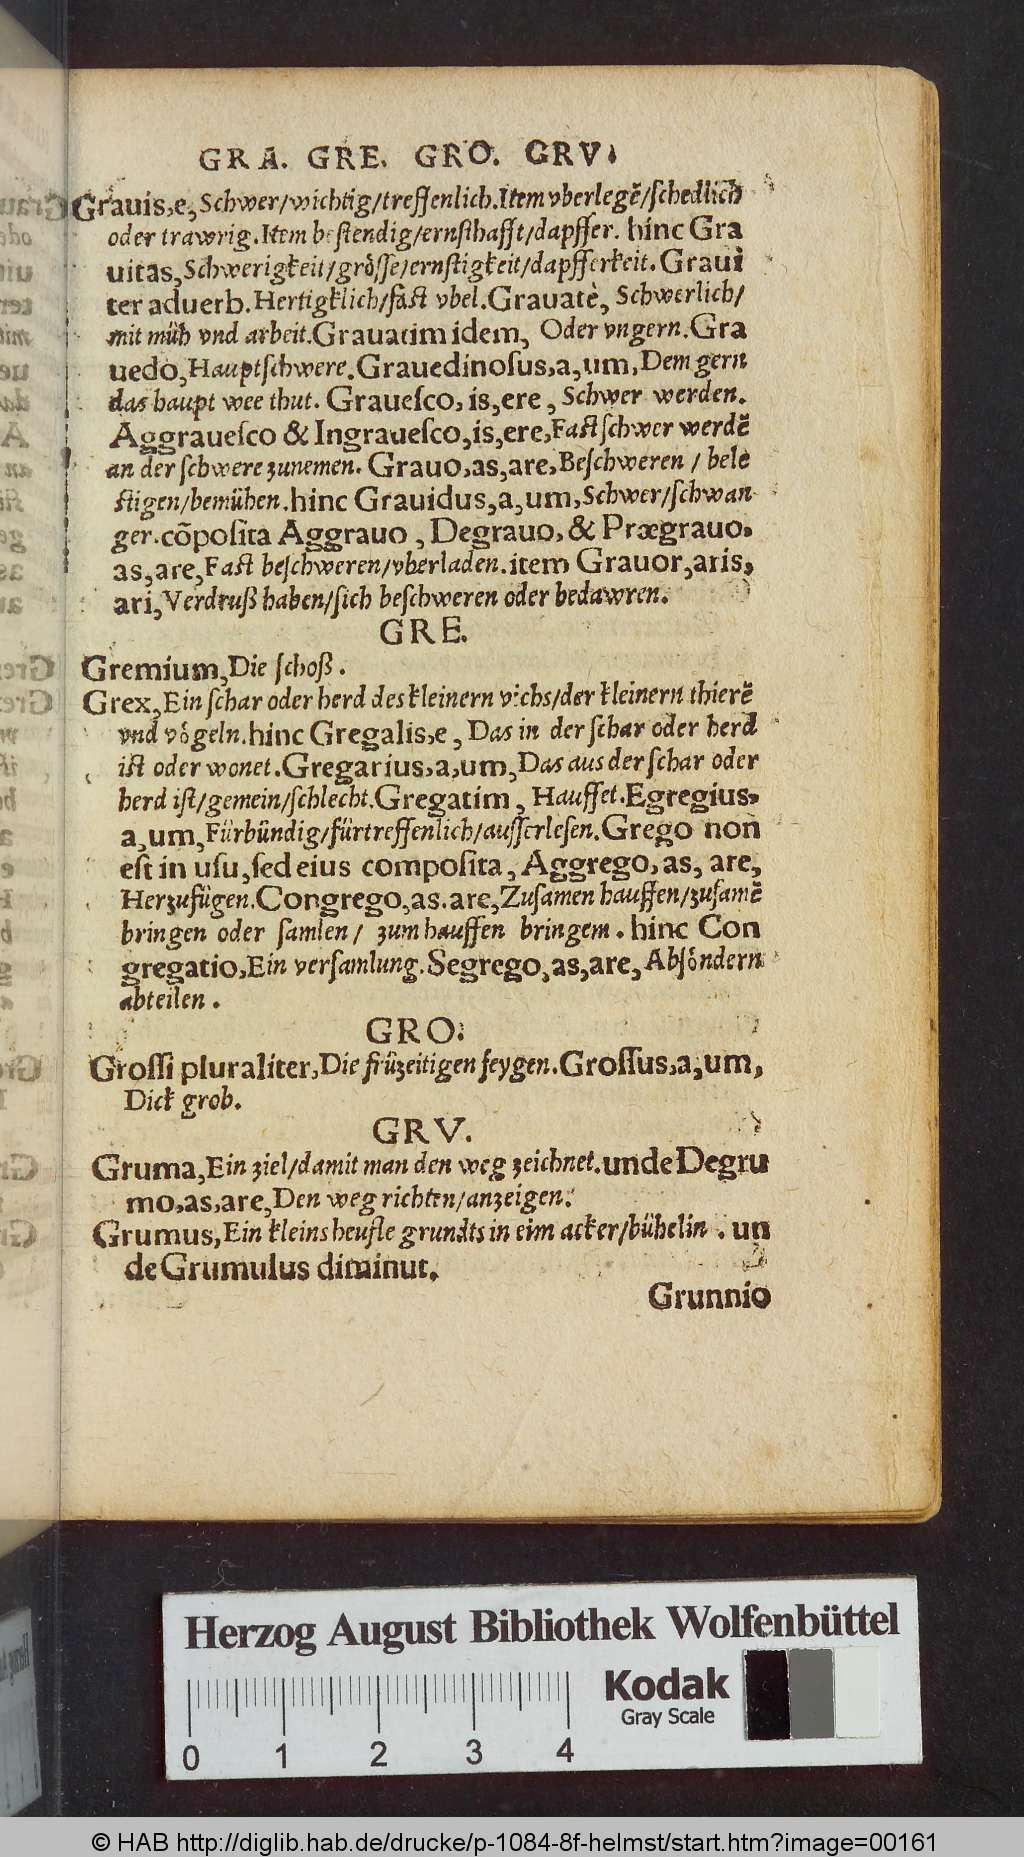 GRA. GRE. GRO. GRV.
Grauis,e, Schwer/wichtig/treffenlich.Item vberlegẽ/schedlich
oder trawrig.Item bestendig/ernsthafft/dapffer. hinc Gra
uitas,Schwerigkeit/grösse/ernstigkeit/dapfferkeit.Graui
ter aduerb.Hertigklich/fast vbel.Grauatè, Schwerlich/
mit müh vnd arbeit.Grauatim idem, Oder vngern.Gra
uedo,Hauptschwere.Grauedinoſus,a,um,Dem gern
das haupt wee thut. Graueſco,is,ere, Schwer werden.
Aggraueſco & Ingraueſco,is,ere,Fast schwer werdẽ
an der schwere zunemen. Grauo,as,are,Beschweren / bele
stigen/bemühen.hinc Grauidus,a,um,Schwer/schwan
ger.cõpoſita Aggrauo, Degrauo, & Prægrauo,
as,are,Fast beschweren/vberladen.item Grauor,aris,
ari,Verdruß haben/sich beschweren oder bedawren.
GRE.
Gremium,Die schoß.
Grex,Ein schar oder herd des kleinern vichs/der kleinern thierẽ
vnd vögeln.hinc Gregalis,e, Das in der schar oder herd
ist oder wonet.Gregarius,a,um,Das aus der schar oder
herd ist/gemein/schlecht.Gregatim, Hauffet.Egregius,
a,um,Fürbündig/fürtreffenlich/ausserlesen.Grego non
eſt in uſu,ſed eius compoſita, Aggrego,as, are,
Herzufügen.Congrego,as.are,Zusamen hauffen/zusamẽ
bringen oder samlen/ zum hauffen bringem. hinc Con
gregatio,Ein versamlung.Segrego,as,are, Absöndern
abteilen.
GRO.
Groſſi pluraliter,Die früzeitigen feygen.Groſſus,a,um,
Dick grob.
GRV.
Gruma,Ein ziel/damit man den weg zeichnet.unde Degru
mo,as,are,Den weg richten/anzeigen.
Grumus,Ein kleins heufle grundts in eim acker/bühelin. un
de Grumulus diminut.
Grunnio
Herzog August Bibliothek Wolfenbüttel
Kodak
Gray Scale
0 1 2 3 4
© HAB http://diglib.hab.de/drucke/p-1084-8f-helmst/start.htm?image=00161